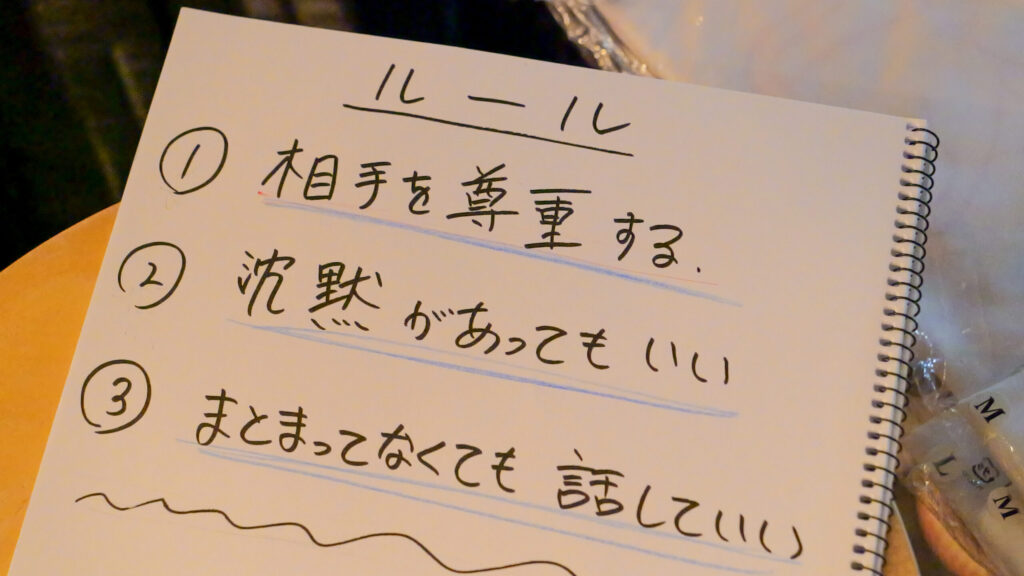 ルール
① 相手を尊重する.
② 沈黙があってもいい
③ まとまってなくても 話していい
M
L M